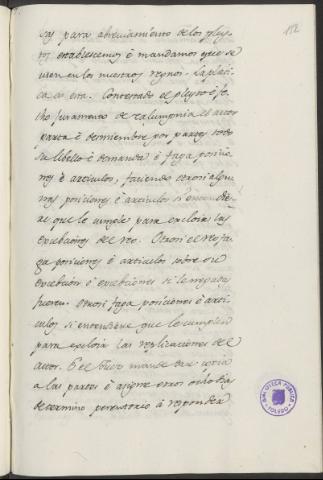 152
sas para abreviamiento de los pley-
tos establescemos è mandamos que se
usen en los nuestros regnos. La plati-
ca es esta. Contestado el pleyto è fe-
cho juramento de calumpnia el actor
parta è desmiembre por partes todo
su libello è demanda è faga posicio-
nes è articulos, faciendo otrosi algu-
nas posiciones è articulos si entendie-
re que le cumple para excloir las
excebciones del reo. Otrosi el reo fa-
ga posiciones è articulos sobre su
excebcion è excebciones si le negadas
fueren. Otrosi faga posiciones è arti-
culos si entendiere que le cumplen
para excloir las replicaciones del
actor. E el Juez mande dar copia
a las partes è asigne otros ocho dias
de termino perentorio à responder
BIBLIOTECA PUBLICA
TOLEDO